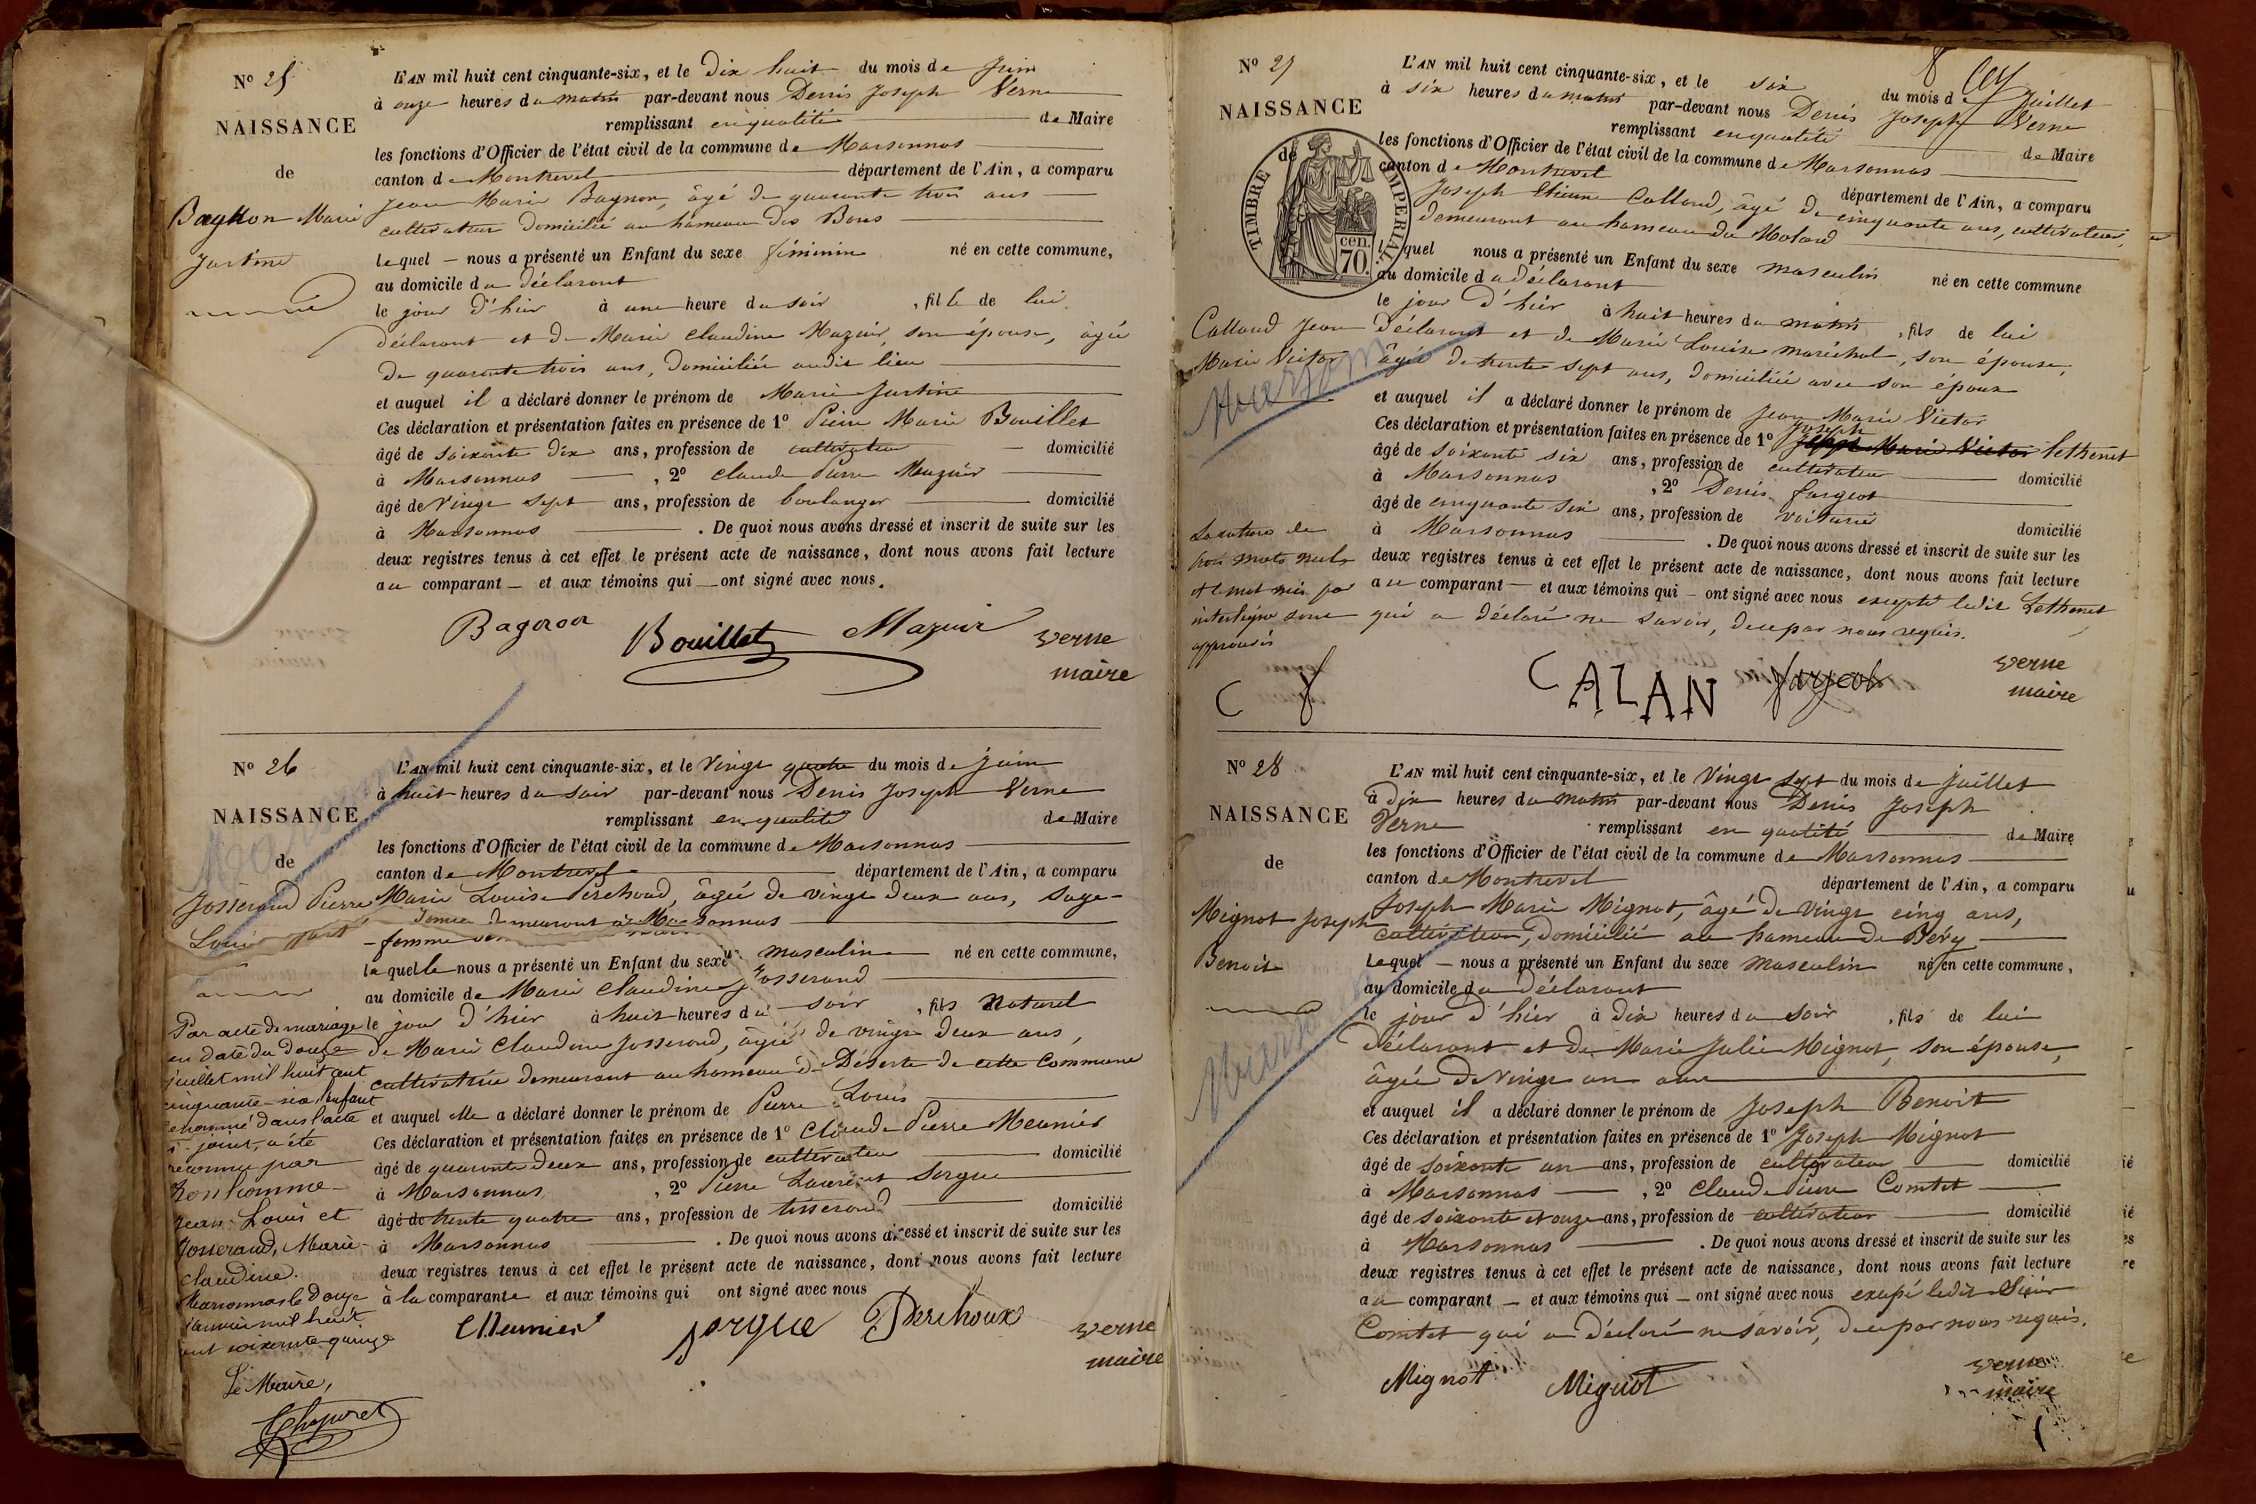 N° 25
NAISSANCE
de
Bagnon Marie
Justine
L'AN mil huit cent cinquante-six, et le dix huit du mois de Juin
à onze heures du matin par-devant nous Denis Joseph Verne
remplissant en qualité de Maire
les fonctions d'Officier de l'état civil de la commune de Marsonnas
canton de Montrevel département de l'Ain, a comparu
Jean Marie Bagnon, âgé de quarante trois ans
cultivateur domicilié au hameau des Bons
lequel — nous a présenté un Enfant du sexe féminin né en cette commune,
au domicile du déclarant
le jour d'hier à une heure du soir, fille de lui
déclarant et de Marie Claudine Mazuir, son épouse, âgée
de quarante trois ans, domiciliée audit lieu
et auquel il a déclaré donner le prénom de Marie Justine
Ces déclaration et présentation faites en présence de 1° Pierre Marie Bouillet
âgé de soixante dix ans, profession de cultivateur — domicilié
à Marsonnas, 2° Claude Pierre Mazuir
âgé de vingt sept ans, profession de boulanger domicilié
à Marsonnas. De quoi nous avons dressé et inscrit de suite sur les
deux registres tenus à cet effet le présent acte de naissance, dont nous avons fait lecture
au comparant — et aux témoins qui — ont signé avec nous.
Bagnon Bouillet Mazuir verne
maire
N° 26
NAISSANCE
de
Josserand Pierre
Louis
L'AN mil huit cent cinquante-six, et le vingt quatre du mois de juin
à huit heures du soir par-devant nous Denis Joseph Verne
remplissant en qualité de Maire
les fonctions d'Officier de l'état civil de la commune de Marsonnas
canton de Montrevel département de l'Ain, a comparu
Marie Louise Perchoud, âgée de vingt deux ans, sage-
-femme demeurant à Marsonnas
laquelle nous a présenté un Enfant du sexe masculin né en cette commune,
au domicile de Marie Claudine Josserand
le jour d'hier à huit heures du soir, fils naturel
de Marie Claudine Josserand, âgée de vingt deux ans,
cultivatrice demeurant au hameau de Déserte de cette commune
et auquel elle a déclaré donner le prénom de Pierre Louis
Ces déclaration et présentation faites en présence de 1° Claude Pierre Meunier
âgé de quarante deux ans, profession de cultivateur domicilié
à Marsonnas, 2° Pierre Laurent Sorgue
âgé de trente quatre ans, profession de tisserand domicilié
à Marsonnas. De quoi nous avons dressé et inscrit de suite sur les
deux registres tenus à cet effet le présent acte de naissance, dont nous avons fait lecture
à la comparante et aux témoins qui ont signé avec nous
Par acte de mariage
en date du douze
juillet mil huit cent
cinquante-six, l'enfant
dénommé dans l'acte
ci-joint, a été
reconnu par
Bonhomme
Jean-Louis et
Josserand, Marie-
claudine.
Marsonnas le douze
janvier mil huit
cent soixante-quinze
Le Maire,
Meunier Sorgue Perchoux verne
maire
N° 27
NAISSANCE
de
TIMBRE IMPERIAL
70 cen.
Calland Jean
Marie Victor
L'AN mil huit cent cinquante-six, et le six du mois de Juillet
à six heures du matin par-devant nous Denis Joseph Verne
remplissant en qualité de Maire
les fonctions d'Officier de l'état civil de la commune de Marsonnas
canton de Montrevel département de l'Ain, a comparu
Joseph Etienne Calland, âgé de cinquante ans, cultivateur,
demeurant au hameau du Molard
lequel nous a présenté un Enfant du sexe masculin né en cette commune
au domicile du déclarant
le jour d'hier à huit heures du matin, fils de lui
déclarant et de Marie Louise Maréchal, son épouse,
âgée de trente sept ans, domiciliée avec son époux
et auquel il a déclaré donner le prénom de Jean Marie Victor
Ces déclaration et présentation faites en présence de 1° Joseph Lethenet
âgé de soixante six ans, profession de cultivateur domicilié
à Marsonnas, 2° Denis Fargeot
âgé de cinquante six ans, profession de voiturier domicilié
à Marsonnas. De quoi nous avons dressé et inscrit de suite sur les
deux registres tenus à cet effet le présent acte de naissance, dont nous avons fait lecture
au comparant — et aux témoins qui — ont signé avec nous excepté ledit Lethenet
qui a déclaré ne savoir, de ce par nous requis.
La rature de
trois mots nuls
et le mot mis par
interligne sont
approuvés
C f
CALAN fargeot verne
maire
N° 28
NAISSANCE
de
Mignot Joseph
Benoit
L'AN mil huit cent cinquante-six, et le vingt sept du mois de Juillet
à dix heures du matin par-devant nous Denis Joseph
Verne remplissant en qualité de Maire
les fonctions d'Officier de l'état civil de la commune de Marsonnas
canton de Montrevel département de l'Ain, a comparu
Joseph Marie Mignot, âgé de vingt cinq ans,
cultivateur, domicilié au hameau de Béry
Lequel — nous a présenté un Enfant du sexe masculin né en cette commune,
au domicile du déclarant
le jour d'hier à dix heures du soir, fils de lui
déclarant et de Marie Julie Mignot, son épouse,
âgée de vingt un ans
et auquel il a déclaré donner le prénom de Joseph Benoit
Ces déclaration et présentation faites en présence de 1° Joseph Mignot
âgé de soixante un ans, profession de cultivateur domicilié
à Marsonnas, 2° Claude Pierre Comtet
âgé de soixante et onze ans, profession de cultivateur domicilié
à Marsonnas. De quoi nous avons dressé et inscrit de suite sur les
deux registres tenus à cet effet le présent acte de naissance, dont nous avons fait lecture
au comparant — et aux témoins qui — ont signé avec nous excepé ledit Sieur
Comtet qui a déclaré ne savoir, de ce par nous requis.
Mignot Mignot verne
maire